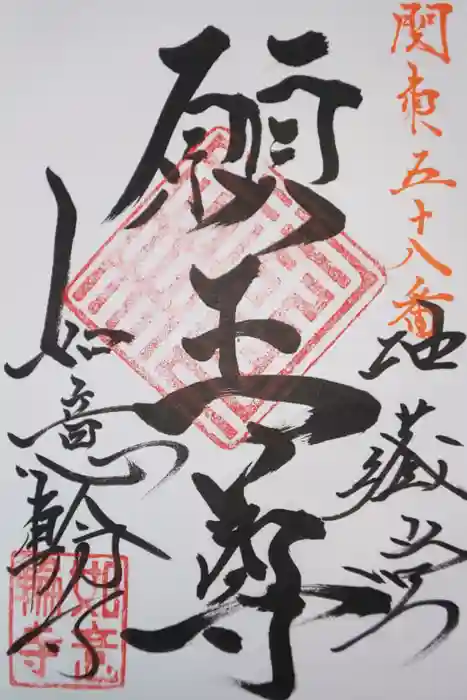 関東五十八番
地蔵堂
願王尊
山如意輪寺
如意
輪寺